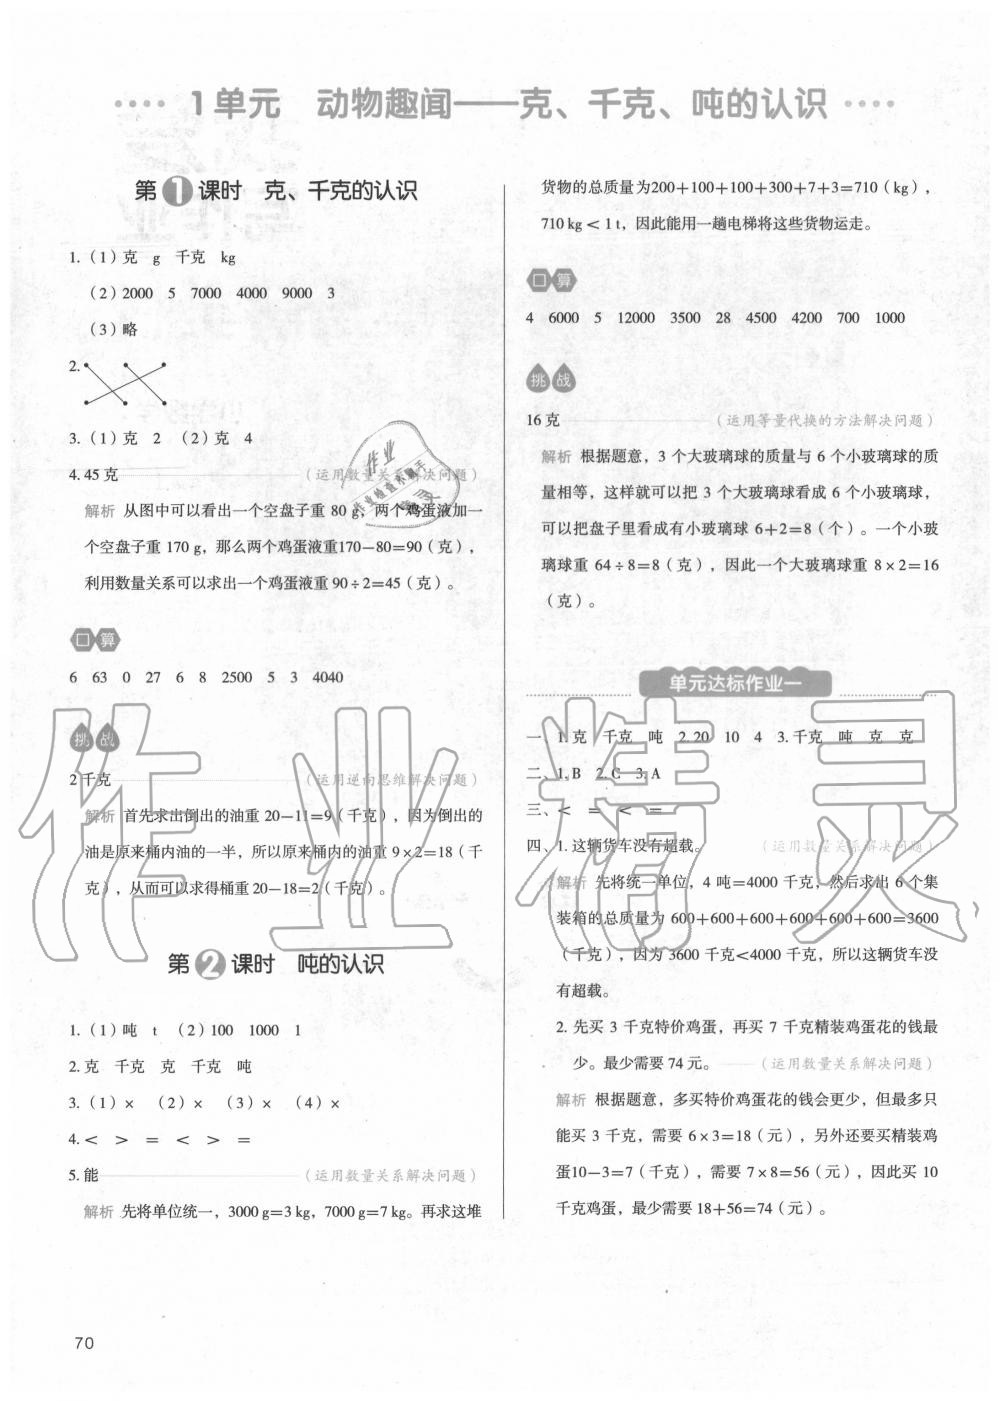 1单元 动物趣闻——克、千克、吨的认识
第1课时 克、千克的认识
1.（1）克 g 千克 kg
（2）2000 5 7000 4000 9000 3
（3）略
2.
3.（1）克 2 （2）克 4
4. 45 克 （运用数量关系解决问题）
解析 从图中可以看出一个空盘子重 80 g，两个鸡蛋液加一
个空盘子重 170 g，那么两个鸡蛋液重170－80=90（克），
利用数量关系可以求出一个鸡蛋液重 90÷2=45（克）。
口算
6 63 0 27 6 8 2500 5 3 4040
挑战
2 千克 （运用逆向思维解决问题）
解析 首先求出倒出的油重 20－11=9（千克），因为倒出的
油是原来桶内油的一半，所以原来桶内的油重 9×2=18（千
克），从而可以求得桶重 20－18=2（千克）。
第2课时 吨的认识
1.（1）吨 t （2）100 1000 1
2. 克 千克 克 千克 吨
3.（1）× （2）× （3）× （4）×
4. < > = < > =
5. 能 （运用数量关系解决问题）
解析 先将单位统一，3000 g=3 kg，7000 g=7 kg。再求这堆
70
货物的总质量为200+100+100+300+7+3=710（kg），
710 kg < 1 t，因此能用一趟电梯将这些货物运走。
口算
4 6000 5 12000 3500 28 4500 4200 700 1000
挑战
16 克 （运用等量代换的方法解决问题）
解析 根据题意，3 个大玻璃球的质量与 6 个小玻璃球的质
量相等，这样就可以把 3 个大玻璃球看成 6 个小玻璃球，
可以把盘子里看成有小玻璃球 6+2=8（个）。一个小玻
璃球重 64÷8=8（克），因此一个大玻璃球重 8×2=16
（克）。
单元达标作业一
一、1. 克 千克 吨 2. 20 10 4 3. 千克 吨 克 克
二、1. B 2. C 3. A
三、< = < =
四、1. 这辆货车没有超载。 （运用数量关系解决问题）
解析 先将统一单位，4 吨=4000 千克，然后求出 6 个集
装箱的总质量为 600+600+600+600+600+600=3600
（千克），因为 3600 千克<4000 千克，所以这辆货车没
有超载。
2. 先买 3 千克特价鸡蛋，再买 7 千克精装鸡蛋花的钱最
少。最少需要 74 元。 （运用数量关系解决问题）
解析 根据题意，多买特价鸡蛋花的钱会更少，但最多只
能买 3 千克，需要 6×3=18（元），另外还要买精装鸡
蛋10－3=7（千克），需要 7×8=56（元），因此买 10
千克鸡蛋，最少需要 18+56=74（元）。
作业精灵